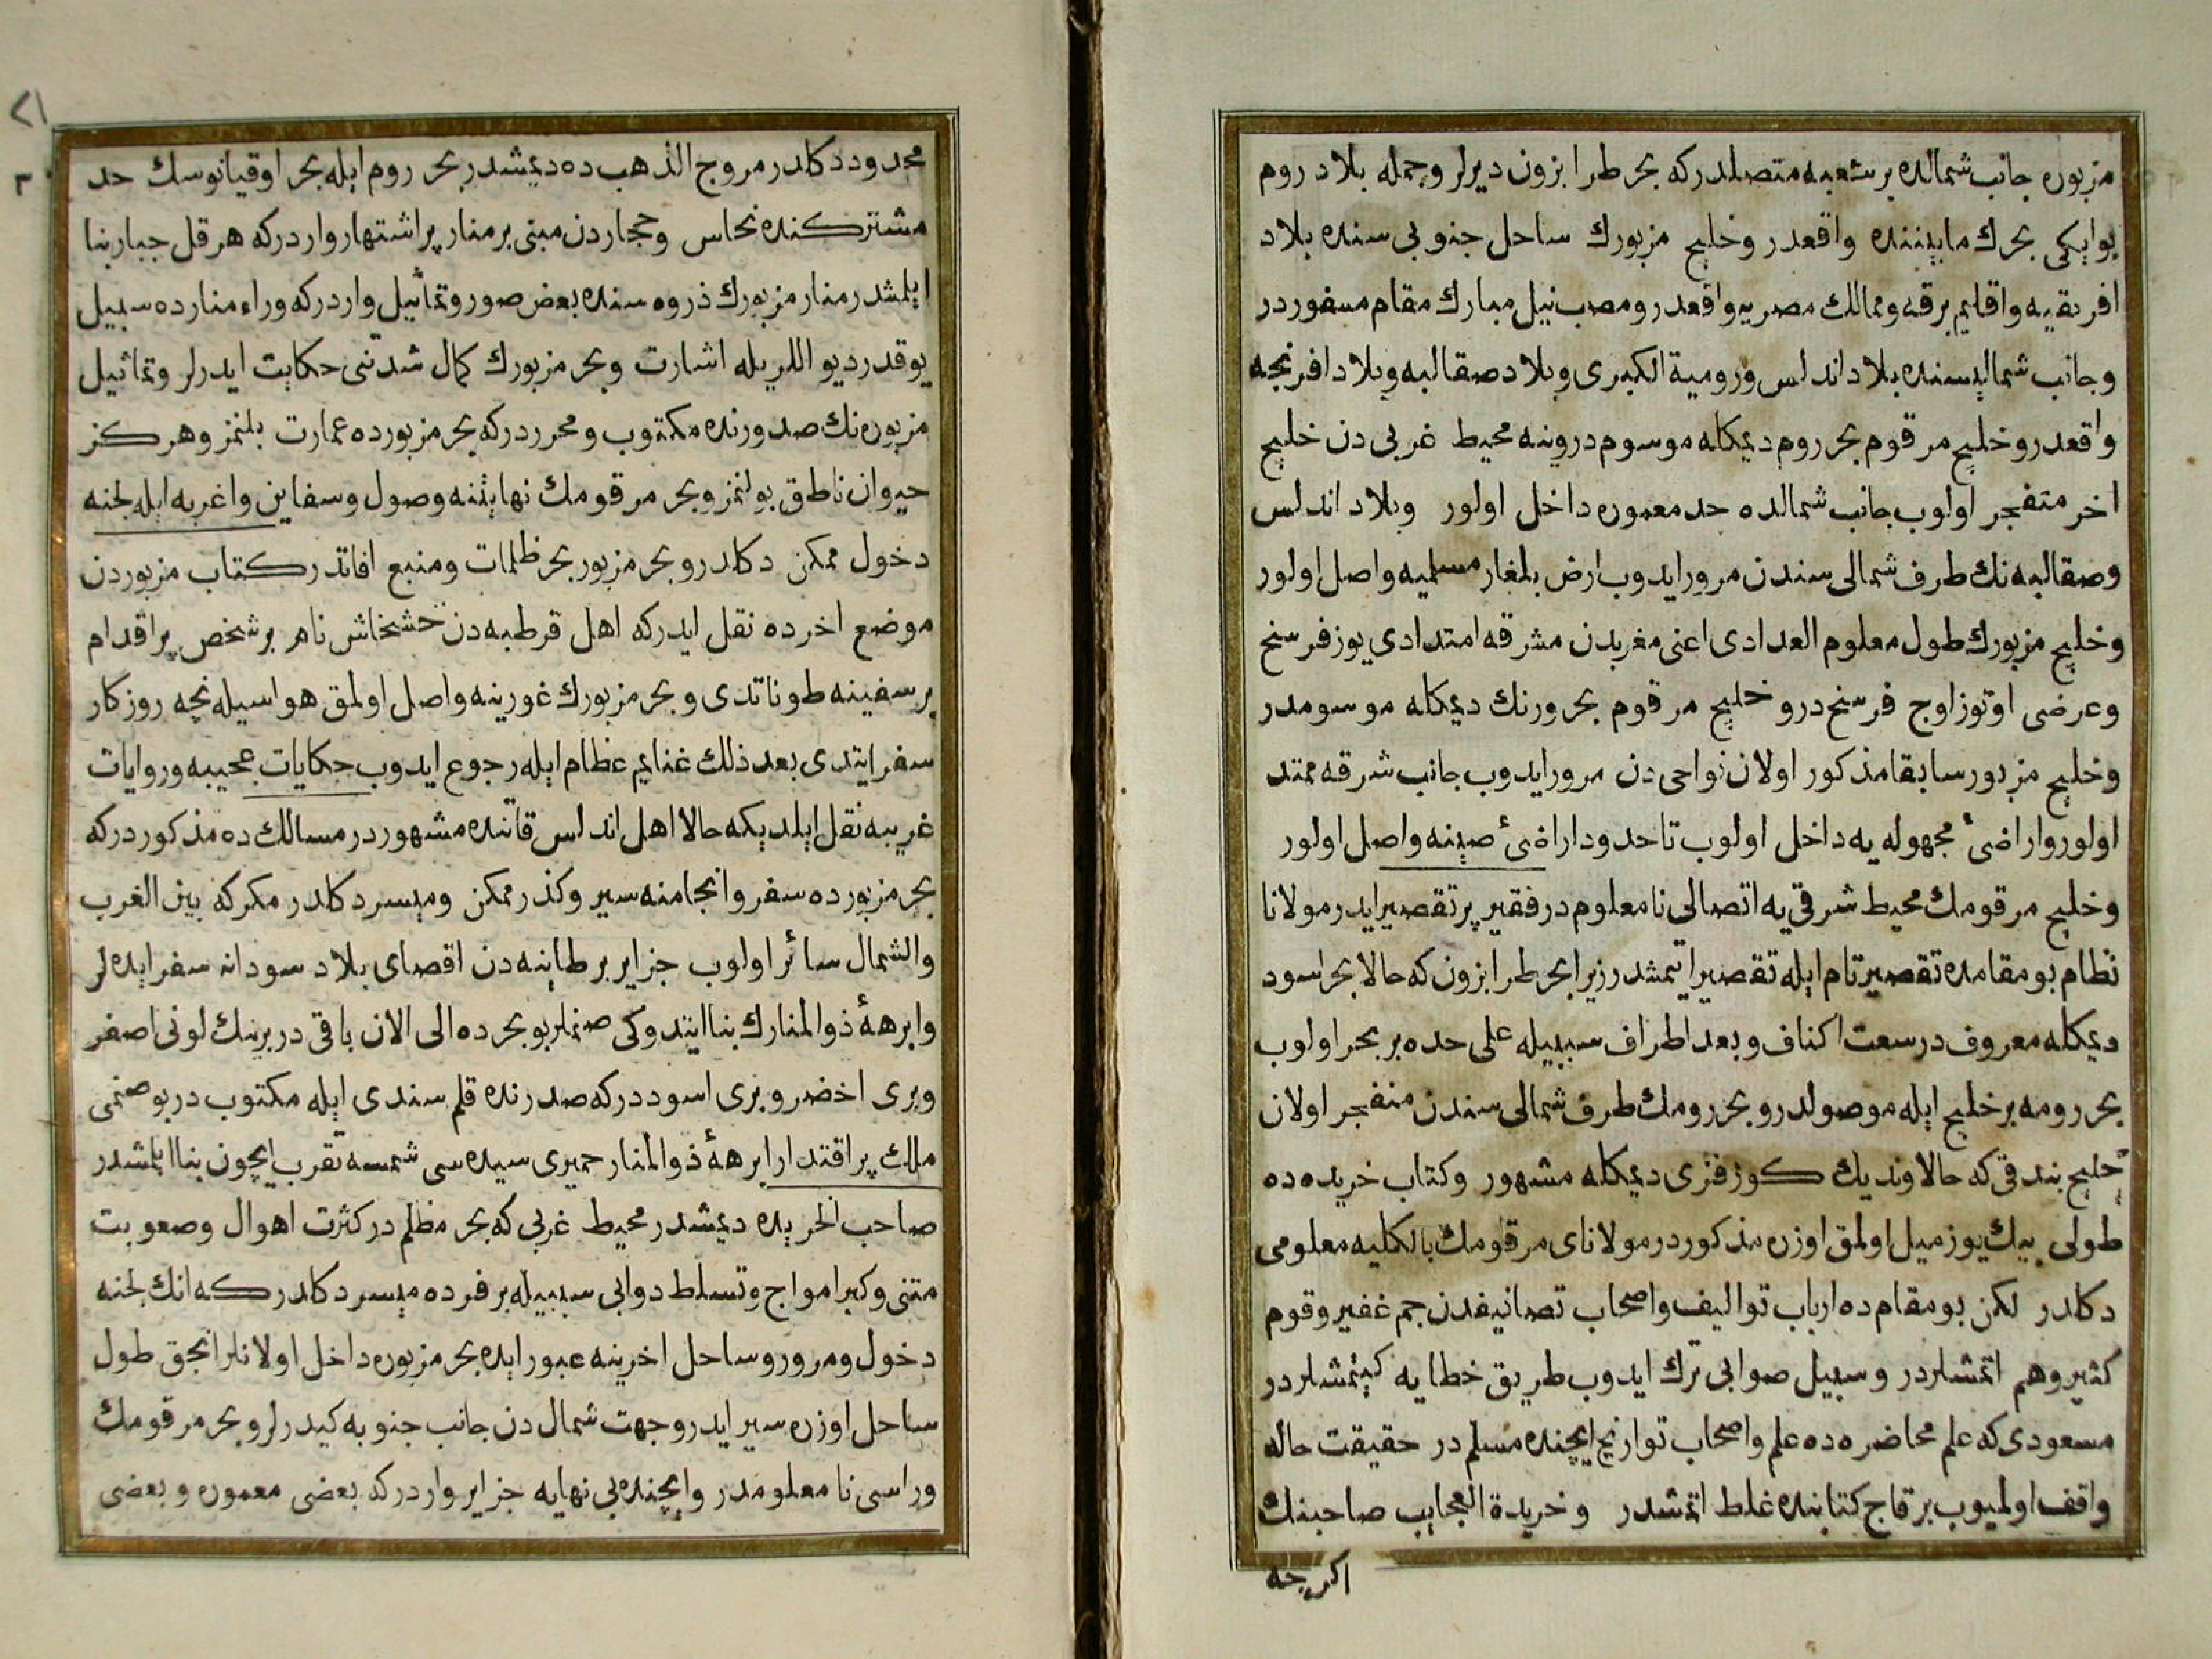 مزبوره جانب شمالنده بر شعبه متصلدركه بحر طرابزون ديرلر وجمله بلاد روم
بوايكى بحرك مابيننده واقعدر وخليج مزبورك ساحل جنوبى سنده بلاد
افريقيه واقاليم برقه وممالك مصريه واقعدر ومصب نيل مبارك مقام مسفوردر
وجانب شماليسنده بلاد اندلس ورومية الكبرى وبلاد صقالبه وبلاد افرنجه
واقعدر وخليج مرقوم بحر روم ديمكله موسومدر وينه محيط غربى دن خليج
اخر متفجر اولوب جانب شمالده حد معموره داخل اولور وبلاد اندلس
وصقالبه نك طرف شمالى سندن مرور ايدوب ارض بلغار مسلميه واصل اولور
وخليج مزبورك طول معلوم العدادى اعنى مغربدن مشرقه امتدادى يوز فرسنخ
وعرضى اوتوز اوج فرسنخ در و خليج مرقوم بحر ورنك ديمكله موسومدر
وخليج مزبور سابقا مذكور اولان نواحى دن مرور ايدوب جانب شرقه ممتد
اولور واراضئ مجهوله يه داخل اولوب تا حدود اراضئ صينه واصل اولور
وخليج مرقومك محيط شرقى يه اتصالى نامعلوم در فقير پر تقصير ايدر مولانا
نظام بو مقامده تقصير تام ايله تقصير ايتمشدر زيرا بحر طرابزون كه حالا بحر اسود
ديمكله معروف در سعت اكناف وبعد اطراف سببيله على حده بر بحر اولوب
بحر رومه بر خليج ايله موصولدر وبحر رومك طرف شمالى سندن منفجر اولان
خليج بندقى كه حالا ونديك كورفزى ديمكله مشهور وكتاب خريده ده
طولى بيك يوز ميل اولمق اوزره مذكوردر مولاناى مرقومك بالكليه معلومى
دكلدر لكن بو مقام ده ارباب تواليف واصحاب تصانيفدن جم غفير وقوم
كثير وهم اتمشلردر وسبيل صوابى ترك ايدوب طريق خطايه كيتمشلردر
مسعودى كه علم محاضره ده علم واصحاب تواريخ ايچنده مسلم در حقيقت حاله
واقف اولميوب بر قاج كتابنده غلط اتمشدر وخريدة العجايب صاحبنك
اكرچه
٢١
محدود دكلدر مروج الذهب ده ديمشدر بحر روم ايله بحر اوقيانوسك حد
مشتركنده نحاس وحجاردن مبنى بر منار پر اشتهار واردركه هرقل جبار بنا
ايلمشدر منار مزبورك ذروه سنده بعض صور وتماثيل واردركه وراء منارده سبيل
يوقدر ديو اللريله اشارت وبحر مزبورك كمال شدتنى حكايت ايدرلر وتماثيل
مزبوره نك صدورنده مكتوب ومحرردركه بحر مزبورده عمارت بلنمز وهركز
حيوان ناطق بولنمز وبحر مرقومك نهايتنه وصول وسفاين واغربه ايله لجنه
دخول ممكن دكلدر وبحر مزبور بحر ظلمات ومنبع افاتدر كتاب مزبوردن
موضع اخرده نقل ايدركه اهل قرطبه دن خشخاش نام بر شخص پر اقدام
بر سفينه طوناتدى وبحر مزبورك غورينه واصل اولمق هواسيله نچه روزكار
سفر ايتدى بعد ذلك غنايم عظام ايله رجوع ايدوب حكايات عجيبه وروايات
غريبه نقل ايلديكه حالا اهل اندلس قاتنده مشهوردر مسالك ده مذكوردركه
بحر مزبورده سفر وانجامنه سير وكذر ممكن وميسر دكلدر مكركه بين الغرب
والشمال سائر اولوب جزاير برطاينه دن اقصاى بلاد سودانه سفر ايده لر
وابرههٔ ذوالمنارك بنا ايتدوكى صنملر بو بحر ده الى الان باقى در برينك لونى اصفر
وبرى اخضر وبرى اسوددركه صدرنده قلم سندى ايله مكتوب در بو صنمى
ملك پر اقتدار ابرههٔ ذوالمنار حميرى سيده سى شمسه تقرب ايچون بنا ايلمشدر
صاحب الخريده ديمشدر محيط غربى كه بحر مظلم در كثرت اهوال وصعوبت
متنى وكبر امواج وتسلط دوابى سببيله بر فرده ميسر دكلدر كه انك لجنه
دخول ومرور وساحل اخرينه عبور ايده بحر مزبوره داخل اولانلر انجق طول
ساحل اوزره سير ايدر وجهت شمال دن جانب جنوبه كيدرلر وبحر مرقومك
وراسى نا معلومدر وايچنده بى نهايه جزاير واردركه بعضى معموره وبعضى